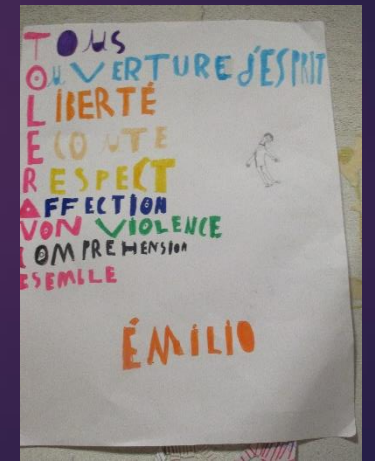 TOUS
OUVERTURE d'ESPRIT
LIBERTÉ
ECOUTE
RESPECT
AFFECTION
NON VIOLENCE
COMPREHENSION
ESEMBLE
ÉMILIO